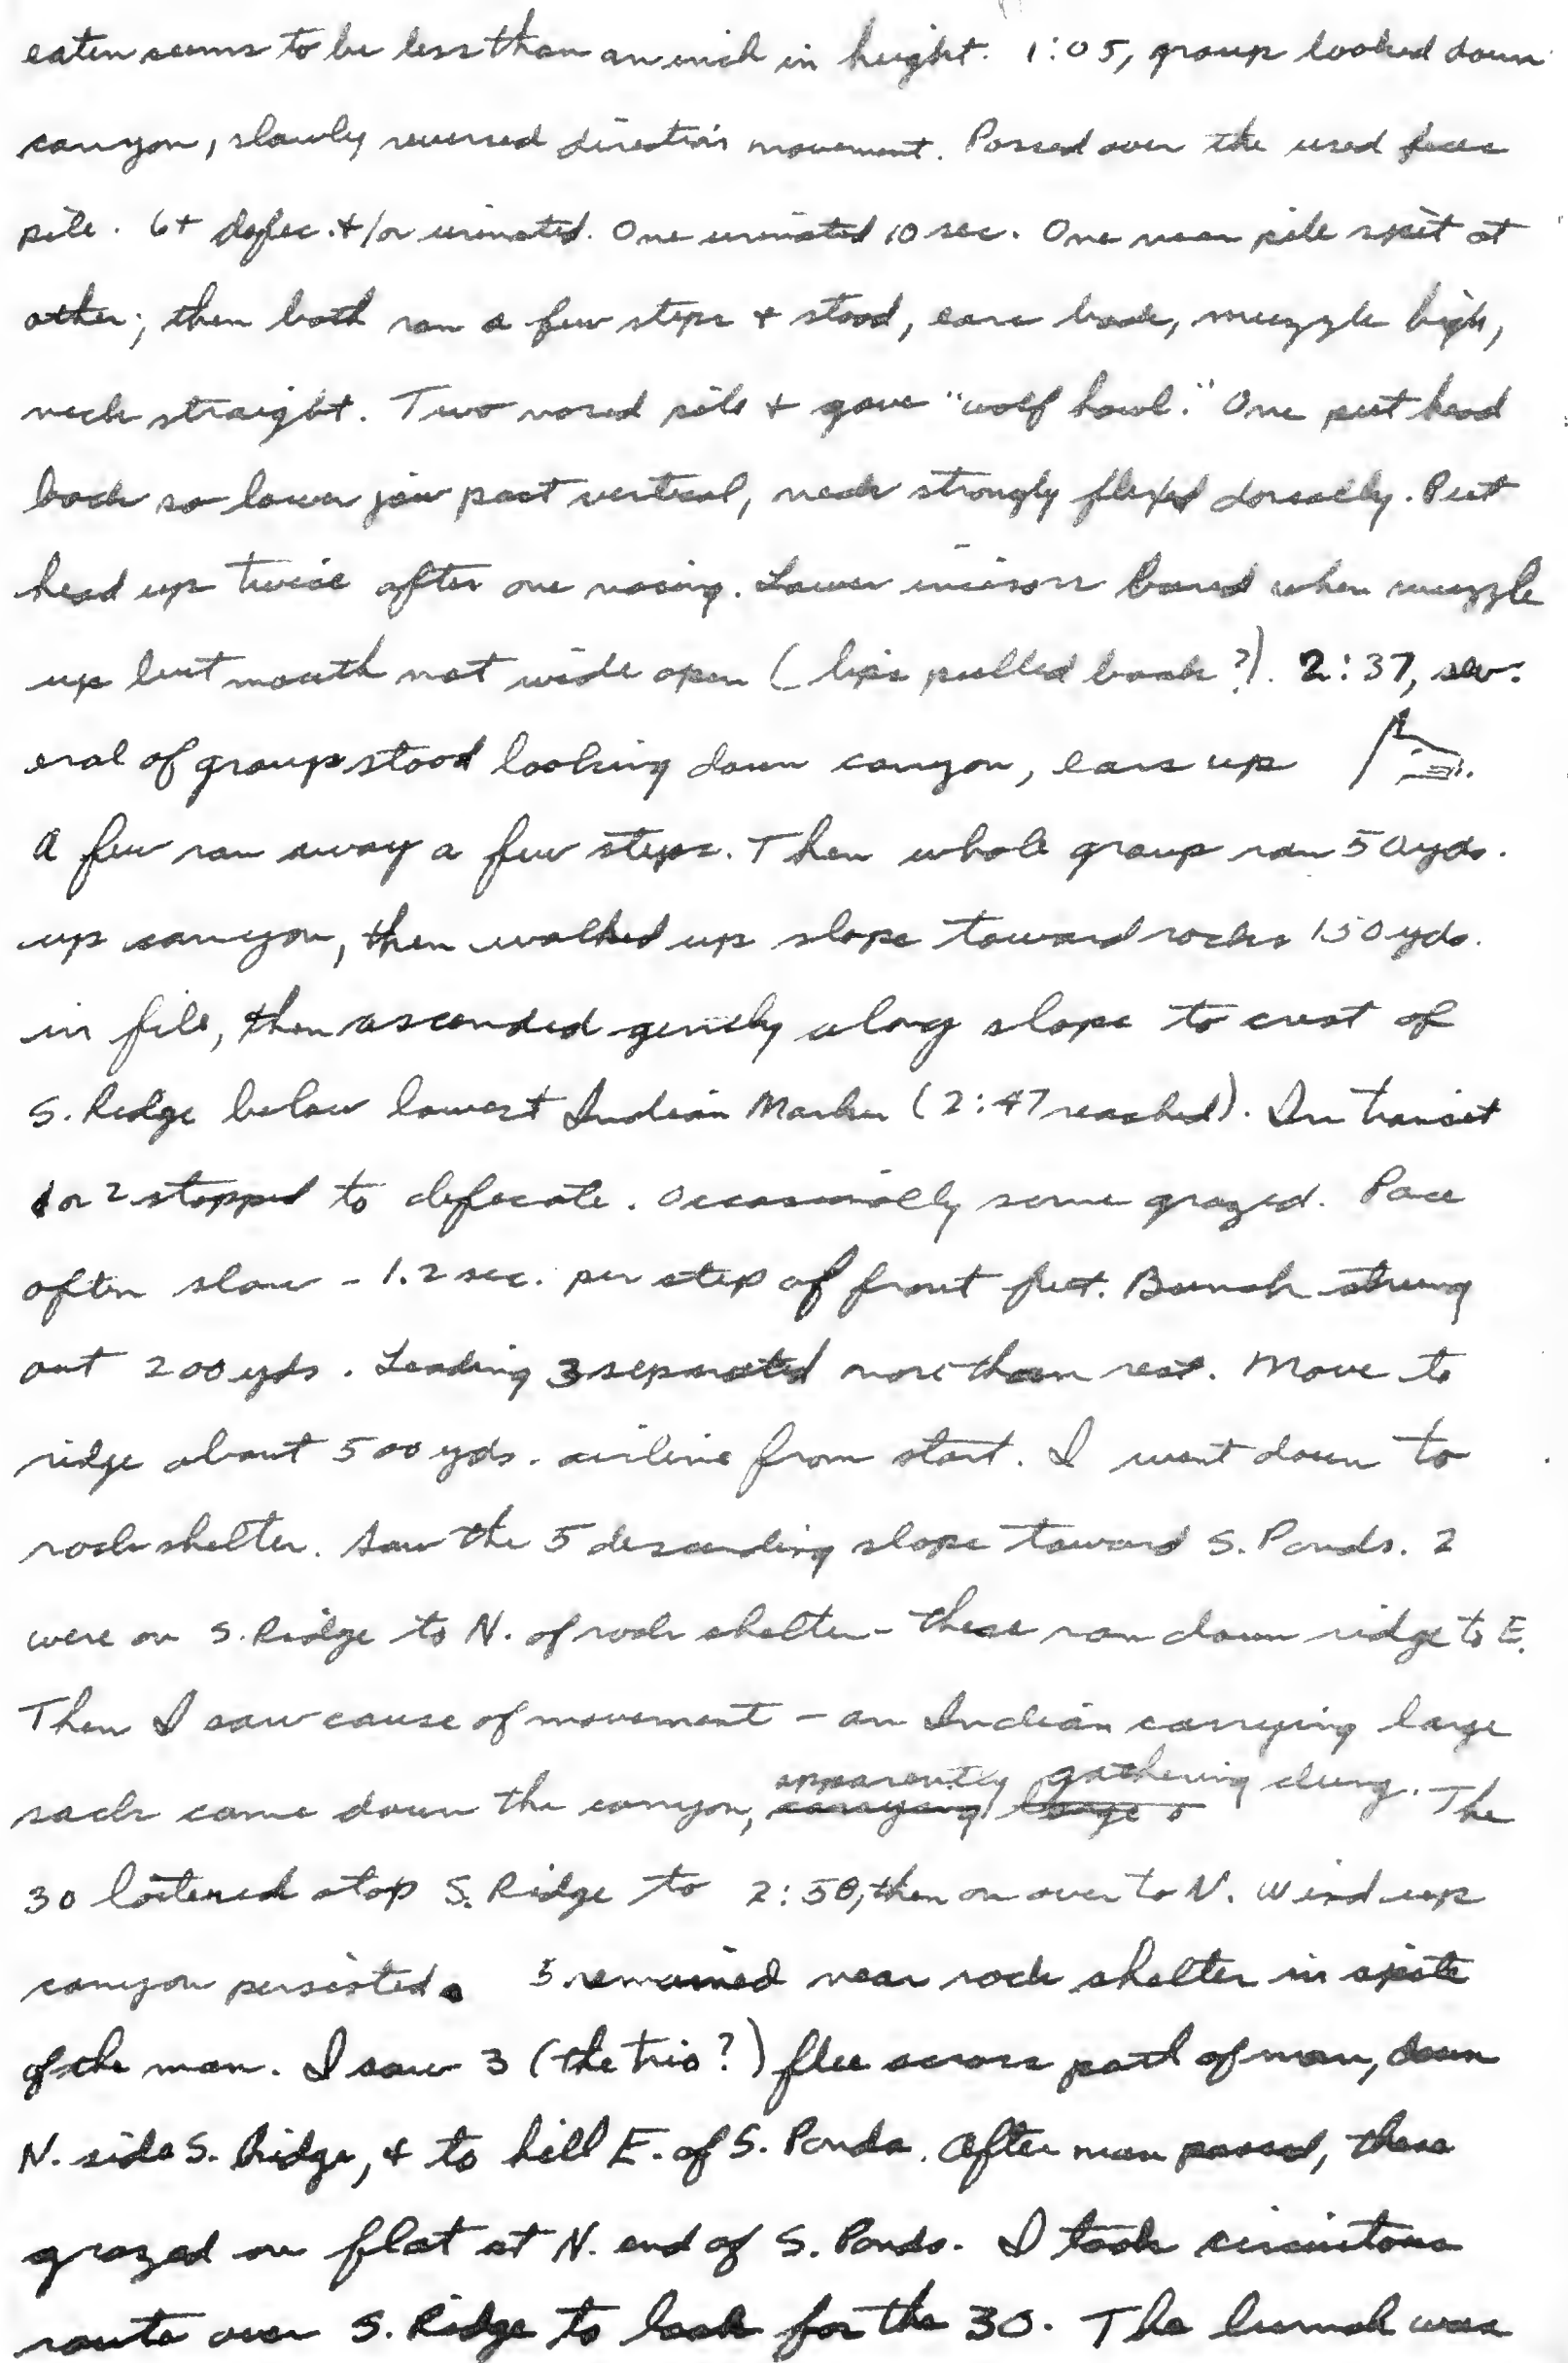 eaten seems to be less than an inch in height. 1:05, group looked down
canyon, slowly reversed direction movement. Passed over the used feces
pile. 6+ defec. +/or urinated. One urinated 10 sec. One near pile spit at
other; then both ran a few steps + stood, ears back, muzzle high,
neck straight. Two nosed pile + gave "wolf howl." One put head
back so lower jaw past vertical, neck strongly flexed dorsally. Put
head up twice after one nosing. Lower incisors bared when muzzle
up but mouth not wide open (lips pulled back?). 2:37, sev-
eral of group stood looking down canyon, ears up
A few ran away a few steps. Then whole group ran 50 yds.
up canyon, then walked up slope toward rocks 150 yds.
in file, then ascended gently along slope to crest of
S. Ridge below lowest Indian Marker (2:47 reached). In transit
1 or 2 stopped to defecate. Occasionally some grazed. Pace
often slow - 1.2 sec. per step of front feet. Bunch strung
out 200 yds. Leading 3 separated more than rest. Move to
ridge about 500 yds. airline from start. I went down to
rock shelter. Saw the 5 descending slope toward S. Ponds. 2
were on S. Ridge to N. of rock shelter - these ran down ridge to E.
Then I saw cause of movement - an Indian carrying large
sack came down the canyon, carrying large s apparently gathering dung. The
30 loitered atop S. Ridge to 2:58, then on over to N. Wind up
canyon persisted. 3 remained near rock shelter in spite
of the man. I saw 3 (the trio?) flee across path of man, down
N. side S. Ridge, + to hill E. of S. Ponds. After man passed, these
grazed on flat at N. end of S. Ponds. I took circuitous
route over S. Ridge to look for the 30. The bunch was